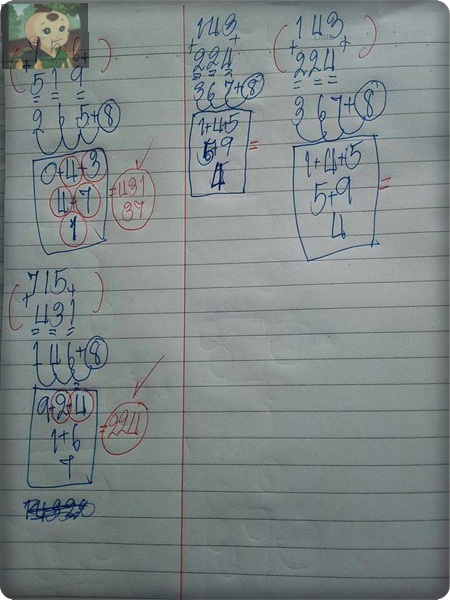 519
2 6 5+8
0+4+3
4+7
1
=431
37
+715+
431
146+8
9+2+4
1+6
7
=224
143
+224
367+8
1+4+5
5+9
4
=
+143+
224
367+8
1+4+5
5+9
4
=